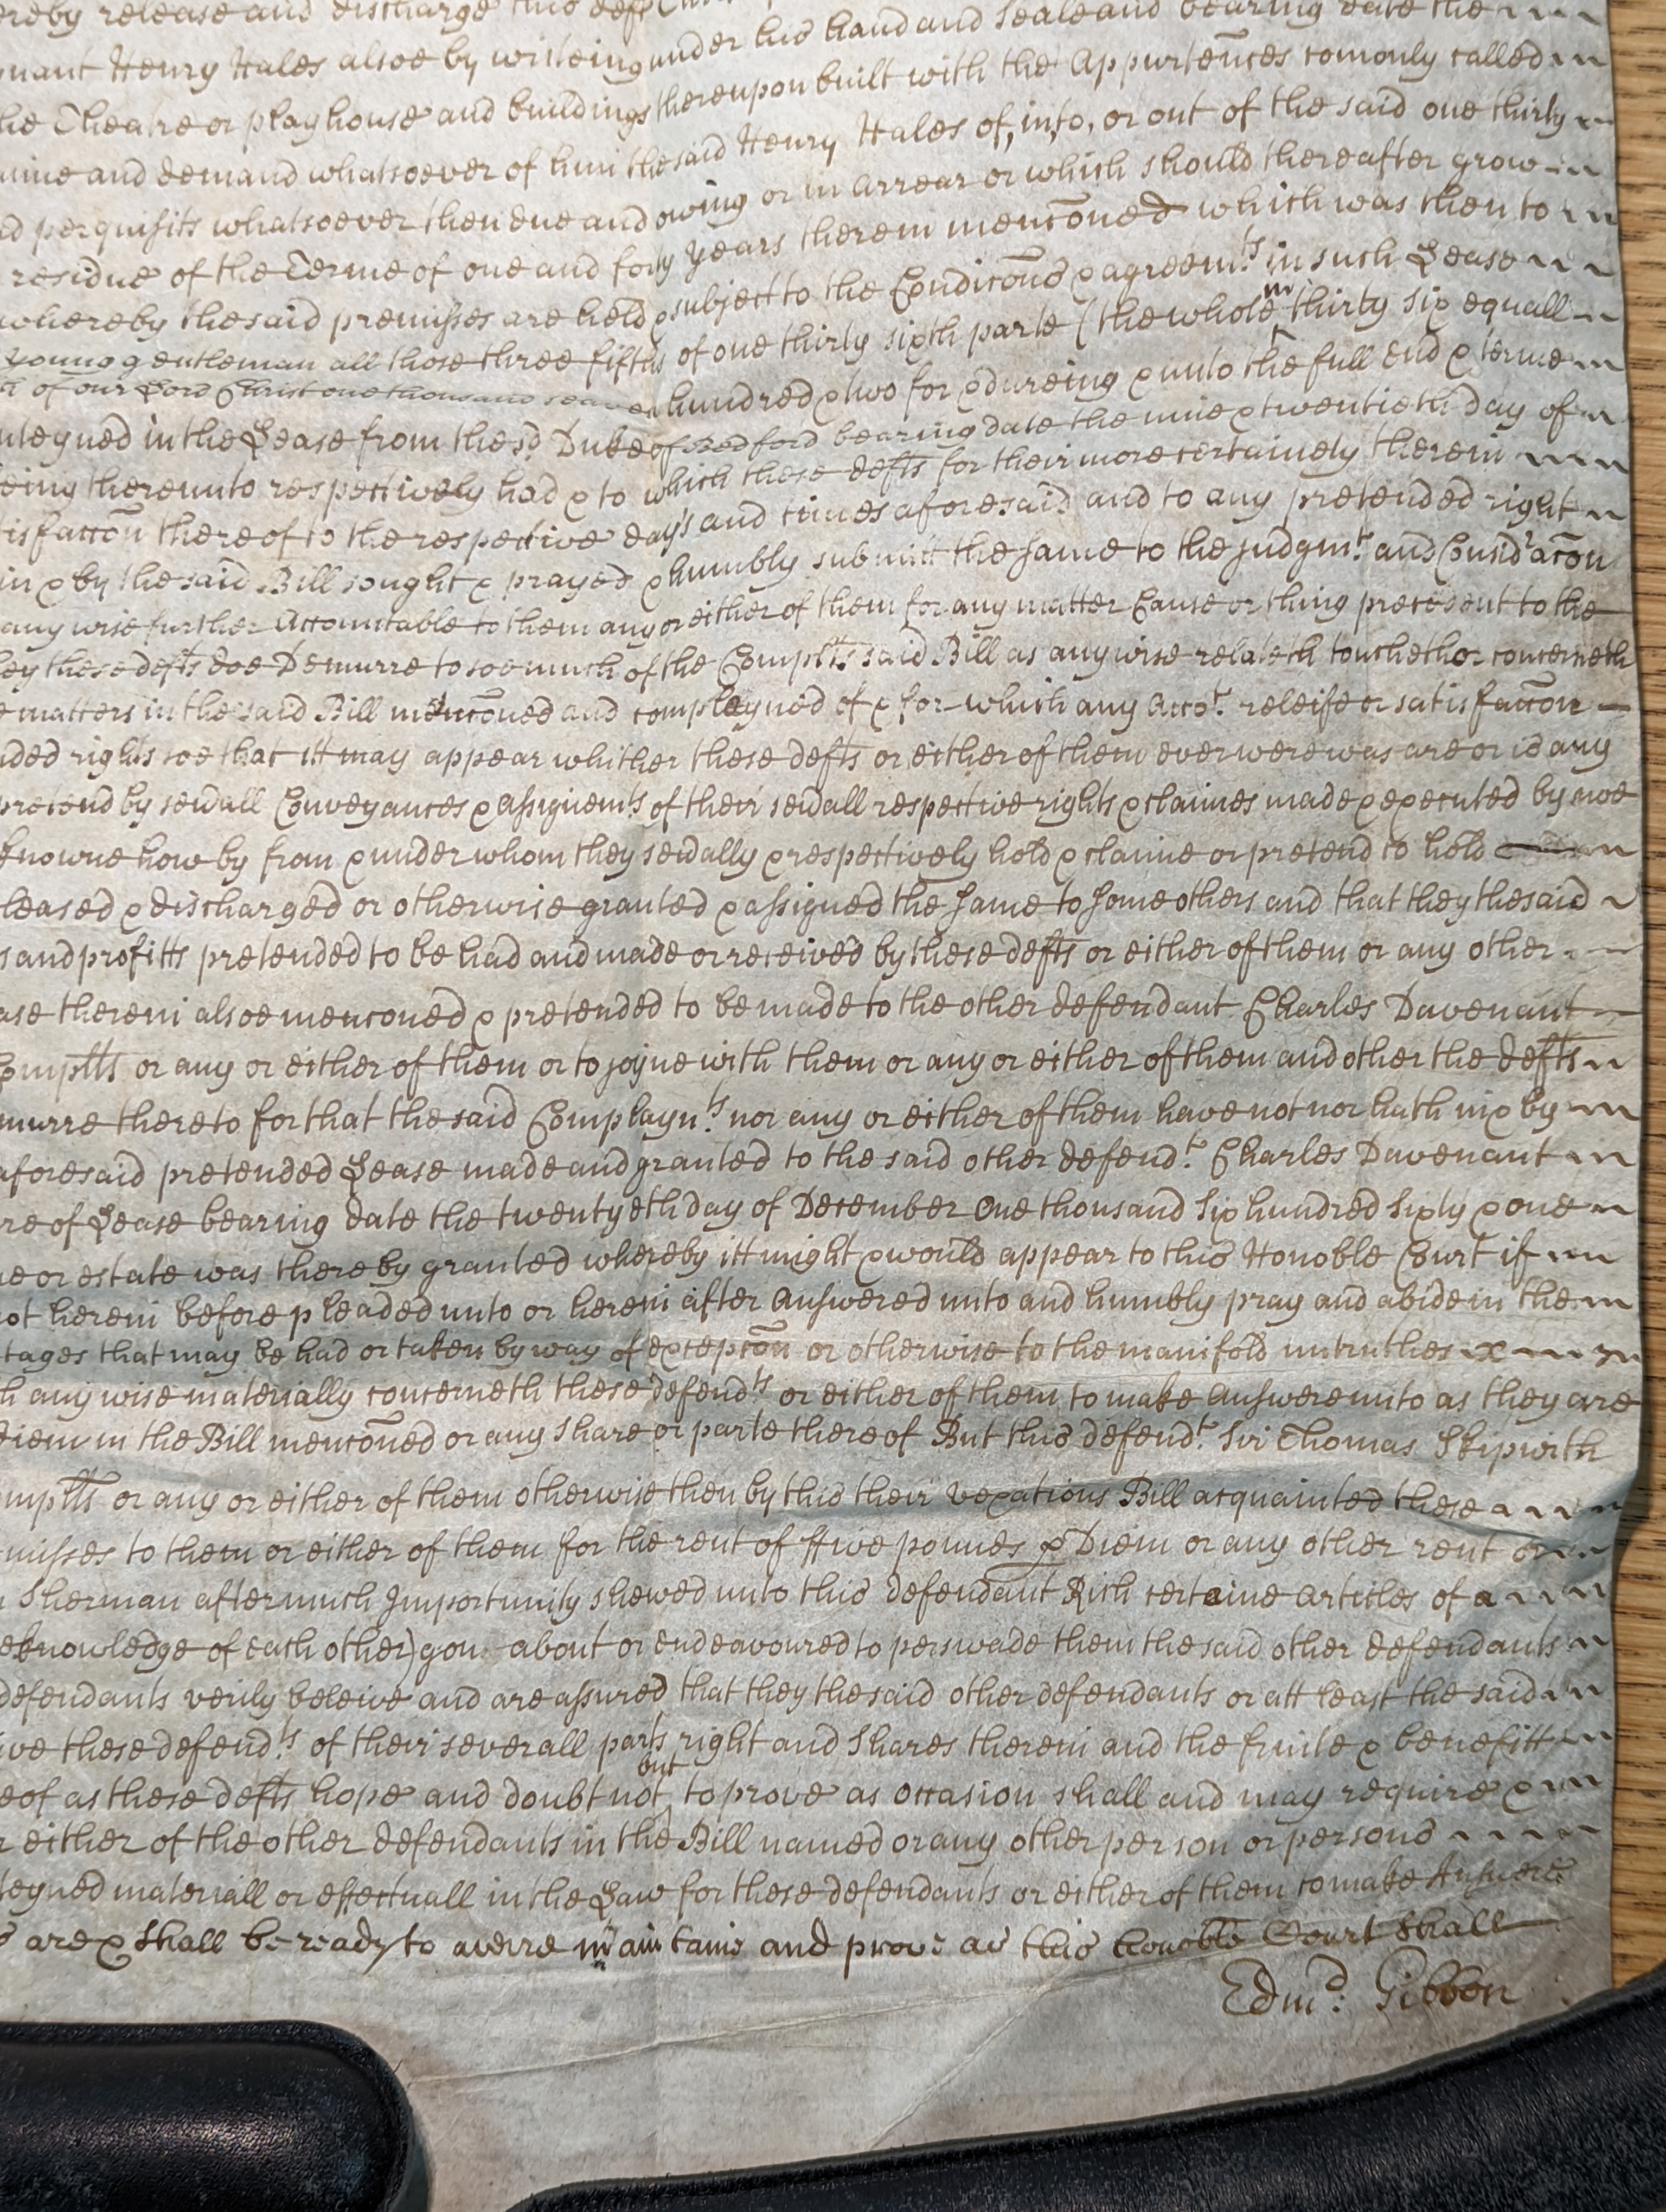 hereby release and discharge this
nant Henry Hales alsoe by writeing under his hand and Seale and bearing date the
the Theatre or playhouse and buildings thereupon built with the Appurten̄ces comonly called
and demand whatsoever of him the said Henry Hales of, into, or out of the said one thirty
perquisits whatsoever then due and owing or in Arrear or which should thereafter grow
residue of the Terme of one and forty years therein menc̄oned which was then to
whereby the said premisses are held & subject to the Condic̄ons & agreemts. in such Lease
young gentleman all those three fifths of one thirty sixth parte (the whole in thirty six equall
of our Lord Christ one thousand seaven hundred & two for & dureing & unto the full End & terme
in the Lease from the sd. Duke of Bedford bearing date the nine & twentieth day of
being thereunto respectively had & to which these defts for their more certainety therein
tisfacc̄on thereof to the respective days and times aforesaid and to any pretended right
in & by the said Bill sought & prayed & humbly submitt the same to the Judgmt. and Considerac̄on
any wise further Accountable to them any or either of them for any matter Cause or thing precedent to the
they these defts doe Demurre to soe much of the Complts said Bill as any wise relateth toucheth or concerneth
matters in the said Bill menc̄oned and complayned of & for which any Accot. releife or satisfacc̄on
ded rights soe that itt may appear whither these defts or either of them ever were was are or is any
pretend by sev̄all Conveyances & assignemts of their sev̄all respective rights & claimes made & executed by
knowne how by from & under whom they sev̄ally & respectively hold & claime or pretend to hold
leased & discharged or otherwise granted & assigned the same to some others and that they the said
s and profitts pretended to be had and made or received by these defts or either of them or any other
ase therein alsoe menconed & pretended to be made to the other defendant Charles Davenant
Complts or any or either of them or to joyne with them or any or either of them and other the defts
murre thereto for that the said Complaynts. nor any or either of them have not nor hath in & by
aforesaid pretended Lease made and granted to the said other defendt. Charles Davenant
re of Lease bearing date the twentyeth day of December One thousand Six hundred Sixty & one
or estate was thereby granted whereby itt might & would appear to this Honoble Court if
not herein before pleaded unto or herein after Answered unto and humbly pray and abide in the
tages that may be had or taken by way of excepc̄on or otherwise to the manifold untruthes
h any wise materially concerneth these defendts or either of them to make Answere unto as they are
diem in the Bill menc̄oned or any share or parte thereof But this defendt. Sir Thomas Skipwith
omplts or any or either of them otherwise then by this their vexatious Bill acquainted these
misses to them or either of them for the rent of ffive pounds ꝑ Diem or any other rent or
Sherman after much Importunity shewed unto this defendant Rich certaine Articles of
knowledge of each other) gon about or endeavoured to perswade them the said other defendants
defendants verily beleive and are assured that they the said other defendants or att least the said
ive these defendts. of their severall parts right and Shares therein and the fruite & benefitt
eof as these defts hope and doubt not but to prove as occasion shall and may require &
r either of the other defendants in the Bill named or any other person or persons
teyned materiall or effectuall in the Law for these defendants or either of them to make Answere
are & shall be ready to averre maintaine and prove as this honoble Court Shall
Edmd: Gibbon